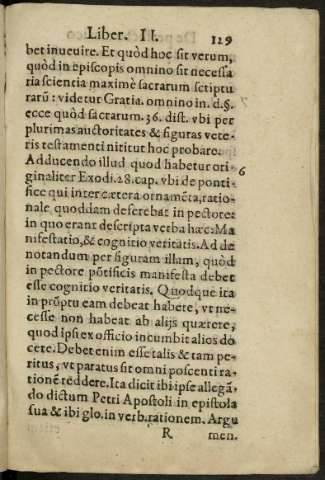 Liber. II. 129
bet inueuire. Et quòd hoc sit verum,
quòd in episcopis omnino sit necessa
ria scientia maximè sacrarum scriptu
rarū: videtur Gratia. omnino in. d. §.
ecce quòd sacrarum. 36. dist. vbi per
plurimas auctoritates & figuras vete-
ris testamenti nititut hoc probare.
Adducendo illud quod habetur ori-
6
ginaliter Exodi. 28. cap. vbi de ponti-
fice qui inter cætera ornamēta, ratio-
nale quoddam deferebat in pectore:
in quo erant descripta verba hæc: Ma
nifestatio, & cognitio veritatis. Ad de
notandum per figuram illam, quòd
in pectore pōtificis manifesta debet
esse cognitio veritatis. Quodque ita
in prōptu eam debeat habere, vt ne-
cesse non habeat ab alijs quærere,
quod ipsi ex officio incumbit alios do
cere. Debet enim esse talis & tam pe-
ritus, vt paratus sit omni poscenti ra-
tionē reddere. Ita dicit ibi ipse allegā-
do dictum Petri Apostoli in epistola
sua & ibi glo. in verb. rationem. Argu
R men.